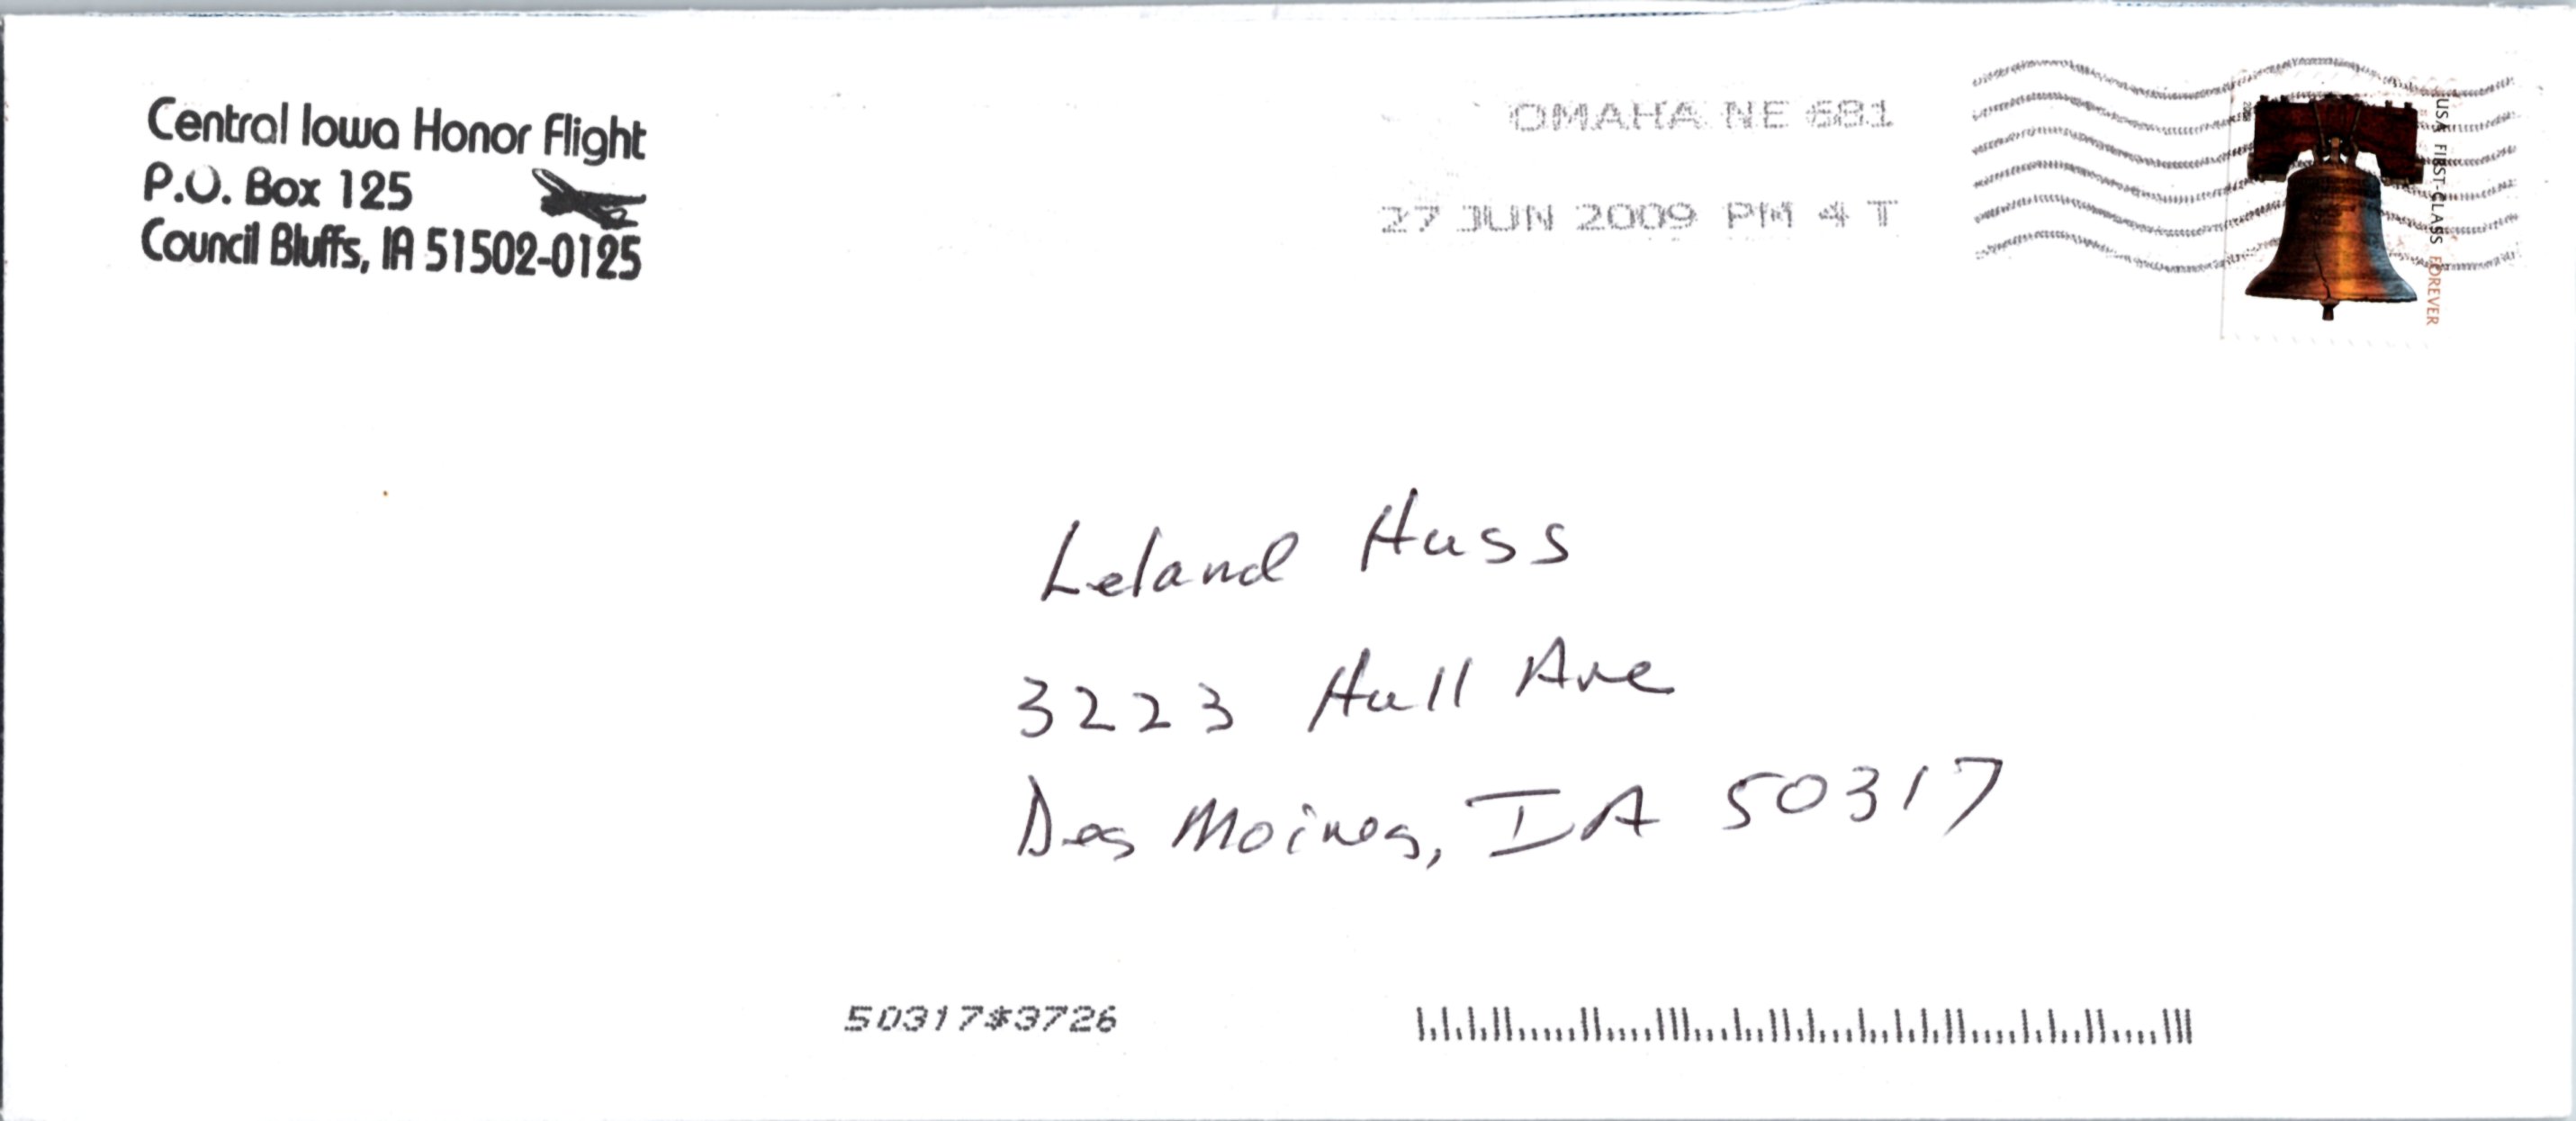 Central Iowa Honor Flight
P.O. Box 125
Council Bluffs, IA 51502-0125
OMAHA NE 681
27 JUN 2009 PM 4 T
USA FIRST-CLASS FOREVER
Leland Huss
3223 Hull Ave
Des Moines, IA 50317
50317*3726